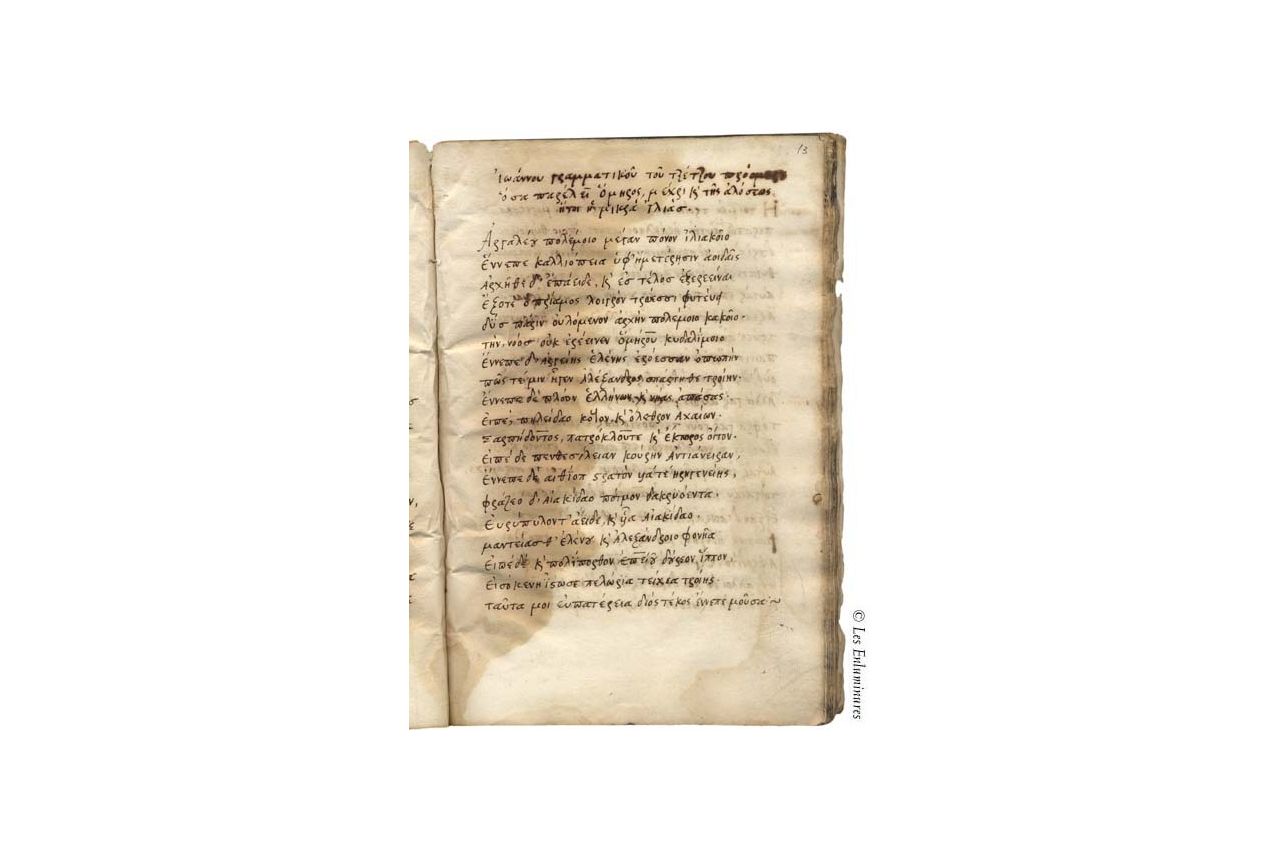 13
Ἰωάννου γραμματικοῦ τοῦ τζέτζου
ὅσα παρέλει Ὅμηρος, μέχρι κ τῆς ἁλόσεως
ἤτοι ἡ μικρὰ ἰλιάς.
Ἀργαλέου πολέμοιο μέγαν πόνον ἰλιακοῖο
Ἔννεπε καλλιόπεια ὑφ' ἡμετέρησιν ἀοιδαῖς
Ἀρχῆθε δ' ἐπάειδε, κ ἐς τέλος ἐξερέεινε
Ἐξότε ὁ πρίαμος λοιγρὸν τρώεσσι φυτεύσ
δύσπαριν οὐλόμενον ἀρχὴν πολέμοιο κακοῖο.
τὴν, νόος οὐκ ἐρέεινεν ὁμήρου κυδαλίμοιο
Ἔννεπε δ' ἀργείης ἑλένης ἐρόεσσαν ὀπωπὴν
πῶς τέ μιν ἦγεν ἀλέξανδρος σπάρτηθε τροίην.
Ἔννεπε δὲ πλόον ἑλλήνων, κ νῆας ἁπάσας
Εἰπὲ, πηλείδαο κότον, κ ὄλεθρον Ἀχαιῶν.
Σαρπήδοντος, πατρόκλου τε κ ἕκτορος οἶτον.
Εἰπὲ δὲ πενθεσίλειαν κούρην Ἀντιάνειραν,
Ἔννεπε δ' αἰθιόπ στρατὸν ἠριγενείης,
φράζεο δ' Αἰακίδαο πότμον δακρυόεντα.
Εὐρύπυλόν τ' ἄειδε, κ Αἰακίδαο.
μαντείας θ' ἑλένου κ Ἀλεξάνδροιο φονῆα
Εἰπὲ δὲ κ πολίπορθον ἐπειοῦ δούρεον ἵππον,
Εἰσόκεν ἤρισωσε πελώρια τείχεα τροίης.
ταῦτά μοι εὐπατέρεια διὸς τέκος ἔννεπε μοῦσα
© Les Enluminures